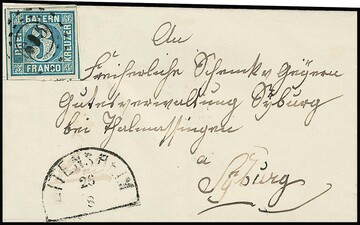 BAYERN
DREI
KREUZER
3
FRANCO
An
Freiherrliche Schenk v Geÿern
Gutsverwaltung Sÿburg
bei Thalmassingen
a
Sÿburg
26
8